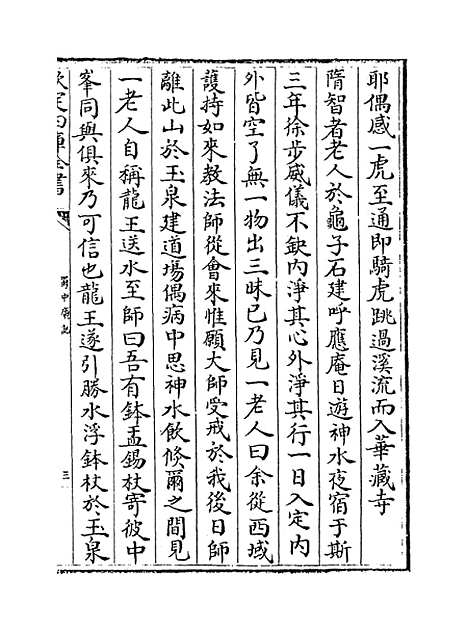 耶偶感一虎至通即騎虎跳過溪流而入華藏寺
隋智者老人於龜子石建呼應庵日遊神水夜宿于斯
三年徐步威儀不缺内淨其心外淨其行一日入定内
外皆空了無一物出三昧已乃見一老人曰余從西域
護持如來教法師從會來惟願大師受戒於我後日師
離此山於玉泉建道場偶病中思神水飲倐爾之間見
一老人自稱龍王送水至師曰吾有鉢盂錫杖寄彼中
峯同與俱來乃可信也龍王遂引勝水浮鉢杖於玉泉
欽定四庫全書
蜀中廣記
三